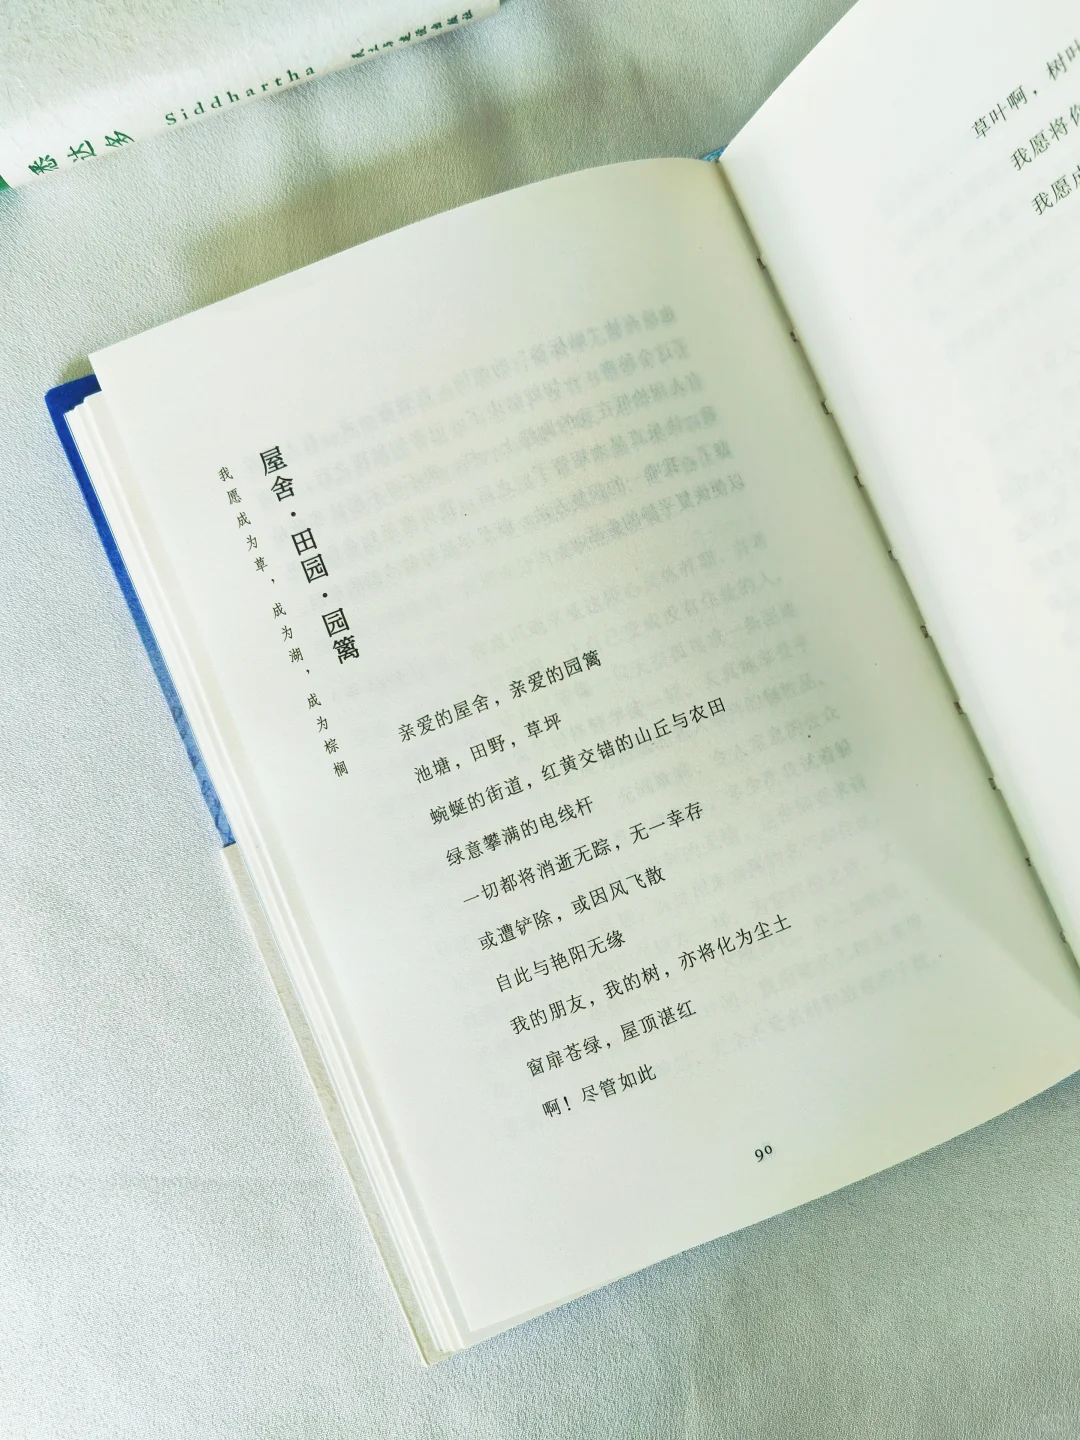 悉达多 Siddhartha
屋舍·田园·园篱
我愿成为草，成为湖，成为棕榈
亲爱的屋舍，亲爱的园篱
池塘，田野，草坪
蜿蜒的街道，红黄交错的山丘与农田
绿意攀满的电线杆
一切都将消逝无踪，无一幸存
或遭铲除，或因风飞散
自此与艳阳无缘
我的朋友，我的树，亦将化为尘土
窗扉苍绿，屋顶湛红
啊！尽管如此
90
草叶啊，树叶
我愿将你
我愿成